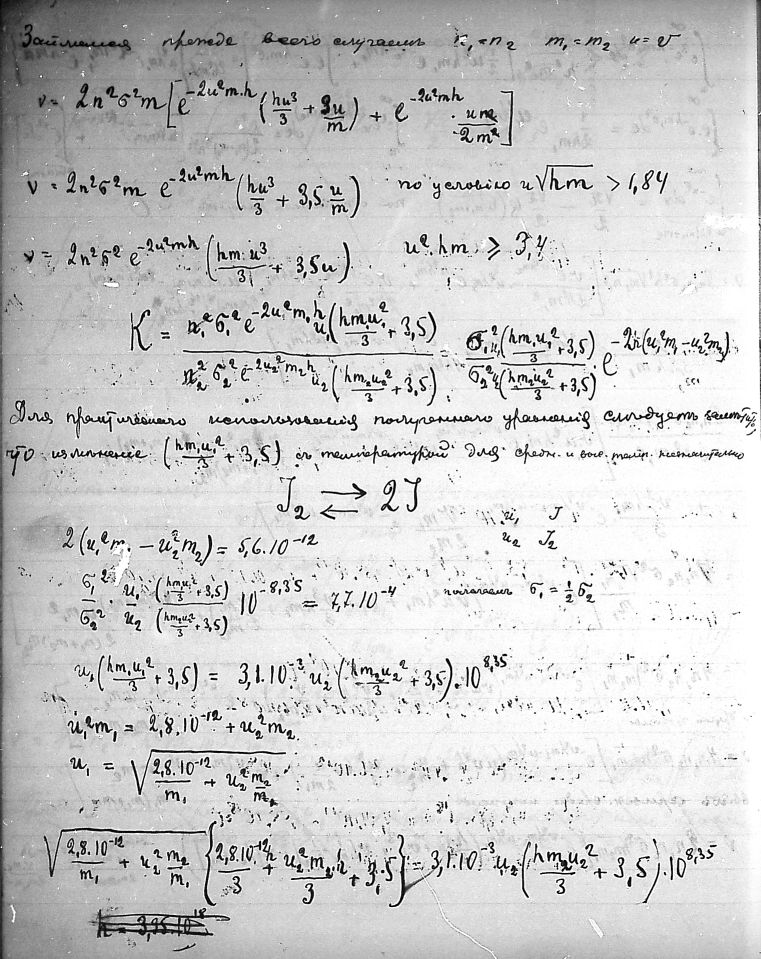 Займемся прежде всего случаемъ n₁=n₂ m₁=m₂ u=v
ν = 2n²σ²m [e^{-2u²m·h} (hu³/3 + 3u/m) + e^{-2u²mh} · um/2m²]
ν = 2n²σ²m e^{-2u²mh} (hu³/3 + 3,5·u/m) по условію u√hm > 1,84
ν = 2n²σ² e^{-2u²mh} (hm·u³/3 + 3,5u) u²·hm ⩾ 3,4
K = n₁²σ₁² e^{-2u₁²m₁h} u₁(hm₁u₁²/3 + 3,5) / n₂²σ₂² e^{-2u₂²m₂h} u₂(hm₂u₂²/3 + 3,5) = σ₁²u₁(hm₁u₁²/3 + 3,5) / σ₂²u₂(hm₂u₂²/3 + 3,5) · e^{-2h(u₁²m₁-u₂²m₂)}
Для практическаго использованія полученнаго уравненія слѣдуетъ замѣтить,
что измѣненіе (hm₁u₁²/3 + 3,5) съ температурой для средн. и выс. темп. незначительно
J₂ ⇄ 2J
u₁ J
2(u₁²m₁ - u₂²m₂) = 5,6·10⁻¹² u₂ J₂
σ₁²/σ₂² · u₁/u₂ · (hm₁u₁²/3 + 3,5)/(hm₂u₂²/3 + 3,5) 10^{-8,35} = 7,7·10⁻⁴ полагаемъ σ₁ = ½σ₂
u₁(hm₁u₁²/3 + 3,5) = 3,1·10⁻³ u₂(hm₂u₂²/3 + 3,5)·10^{8,35}
u₁²m₁ = 2,8·10⁻¹² + u₂²m₂
u₁ = √(2,8·10⁻¹²/m₁ + u₂²m₂/m₁)
√(2,8·10⁻¹²/m₁ + u₂²m₂/m₁) {2,8·10⁻¹²h/3 + u₂²m₂h/3 + 3,5} = 3,1·10⁻³u₂(hm₂u₂²/3 + 3,5)·10^{8,35}
h = 3,95·10¹⁸